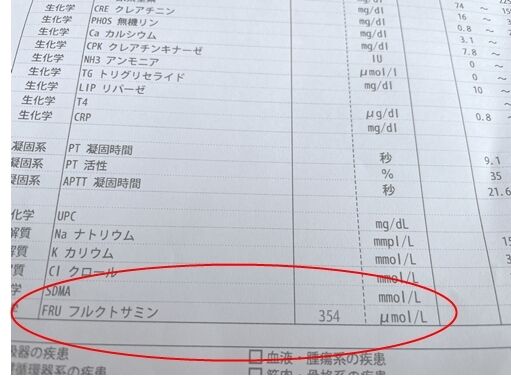 生化学 CRE クレアチニン mg/dl 74 ~
生化学 PHOS 無機リン mg/dl 16 ~
生化学 Ca カルシウム mg/dl 0.8 ~
生化学 CPK クレアチンキナーゼ mg/dl 3.1 ~
生化学 NH3 アンモニア IU 7.8 ~
生化学 TG トリグリセライド μmol/l 0 ~
生化学 LIP リパーゼ mg/dl 0 ~
生化学 T4 10 ~
生化学 CRP μg/dl ~
mg/dl 0.8 ~
凝固系 PT 凝固時間 秒 9.1
凝固系 PT 活性 % 35
凝固系 APTT 凝固時間 秒 21.6
化学 UPC mg/dL
解質 Na ナトリウム mmpl/L
解質 K カリウム mmol/L
質 Cl クロール mmol/L
学 SDMA mmol/L
FRU フルクトサミン 354 μmol/L
器の疾患 □ 血液・腫瘍系の疾患
循環器系の疾患 □ 筋肉・骨格系の疾患